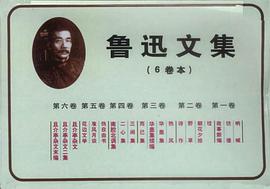 鲁迅文集
(6卷本)
第六卷 第五卷 第四卷 第三卷 第二卷 第一卷
呐喊
彷徨
故事新编
朝花夕拾
野草
热风
华盖集
华盖集续编
而已集
三闲集
二心集
南腔北调集
伪自由书
准风月谈
花边文学
且介亭杂文
且介亭杂文二集
且介亭杂文末编